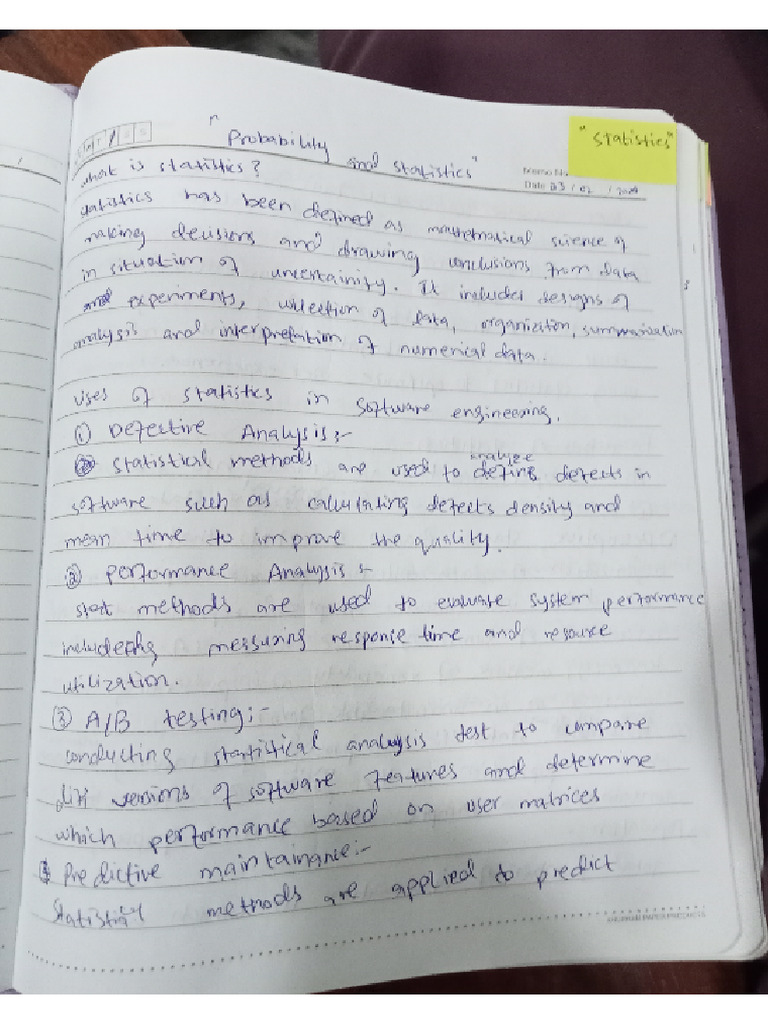 "Statistics"
"Probability and statistics"
Memo No.
Date 23 / 02 /
what is statistics?
statistics has been defined as mathematical science of
making decisions and drawing conclusions from data
in situation of uncertainity. It includes designs of
experiments, collection of data, organization, summarization
analysis and interpretation of numerical data.
Uses of statistics in software engineering.
① Defective Analysis:-
statistical methods are used to defing analyze defects in
software such as calculating defects density and
mean time to improve the quality.
② Performance Analysis:-
stat methods are used to evaluate system performance
measuring response time and resource
utilization.
③ A/B testing:-
conducting statistical analysis test to compare
diff versions of software features and determine
which performance based on user matrices
Predictive maintainance:-
Statistical methods are applied to predict